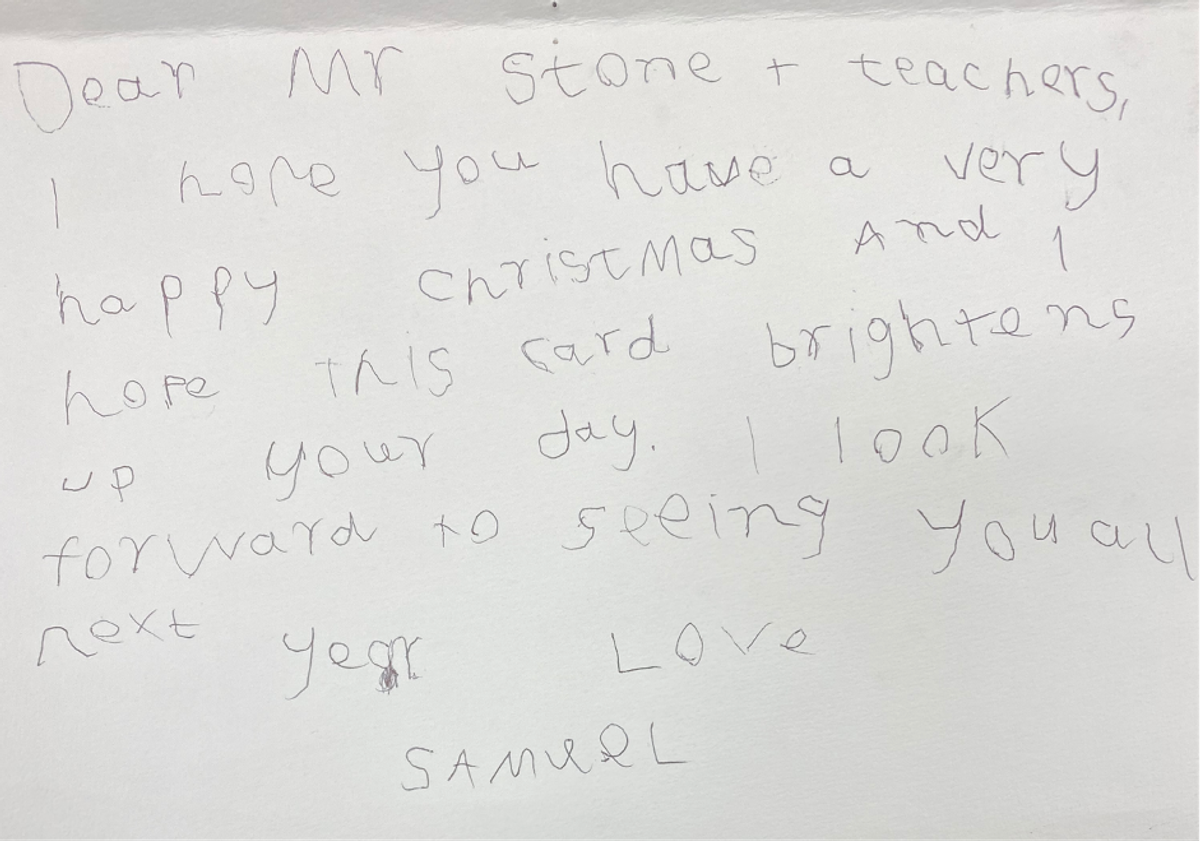 Dear Mr Stone + teachers,
I hope you have a very
happy christmas And I
hope this card brightens
up your day. I look
forward to seeing you all
next year Love
SAMUeL